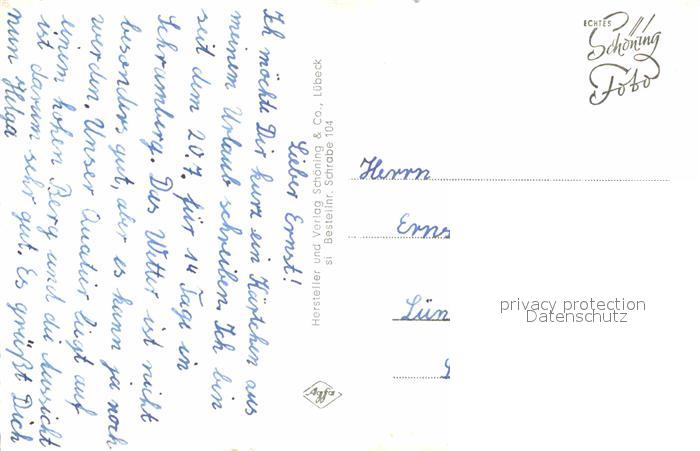 Lieber Ernst!
Ich möchte Dir kurz ein Kärtchen aus
meinem Urlaub schreiben. Ich bin
seit dem 20.7. für 14 Tage in
Schramberg. Das Wetter ist nicht
besonders gut, aber es kann ja noch
werden. Unser Quatier liegt auf
einem hohen Berg und die Aussicht
ist darum sehr gut. Es grüßt Dich
nun Helga
Hersteller und Verlag Schöning & Co., Lübeck
si Bestellnr. Schrabe 104
Agfa
ECHTES
Schöning
Foto
Herrn
Erns
Lün
privacy protection
Datenschutz